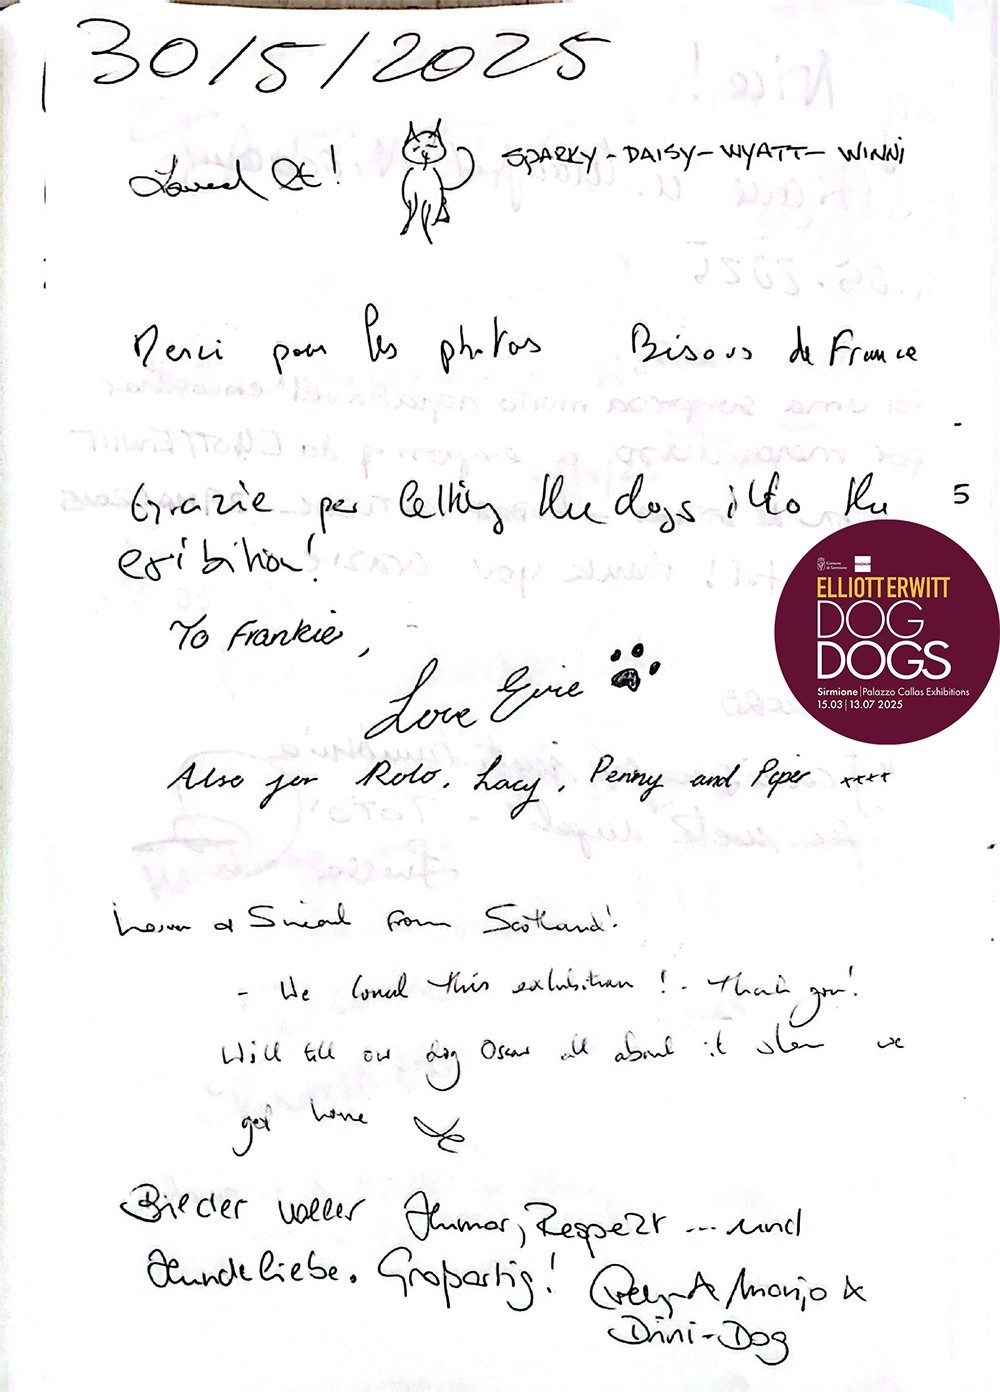 30/5/2025
Loved It! SPARKY - DAISY - WYATT - WINNI
Merci pour les photos Bisous de France
Grazie per letting the dogs into the
exibition!
5
Comune
di Sirmione
MAGNUM
ELLIOTT ERWITT
DOG
DOGS
Sirmione | Palazzo Callas Exhibitions
15.03 | 13.07 2025
To Frankie,
Love Evie
Also for Rolo, Lacy, Penny and Piper ××××
& Sinead from Scotland!
- We loved this exhibition! - Thank you!
Will tell our dog Oscar all about it when we
get home
Bilder voller Humor, Respekt ... und
Hundeliebe. Großartig! & Marijo &
Dini-Dog